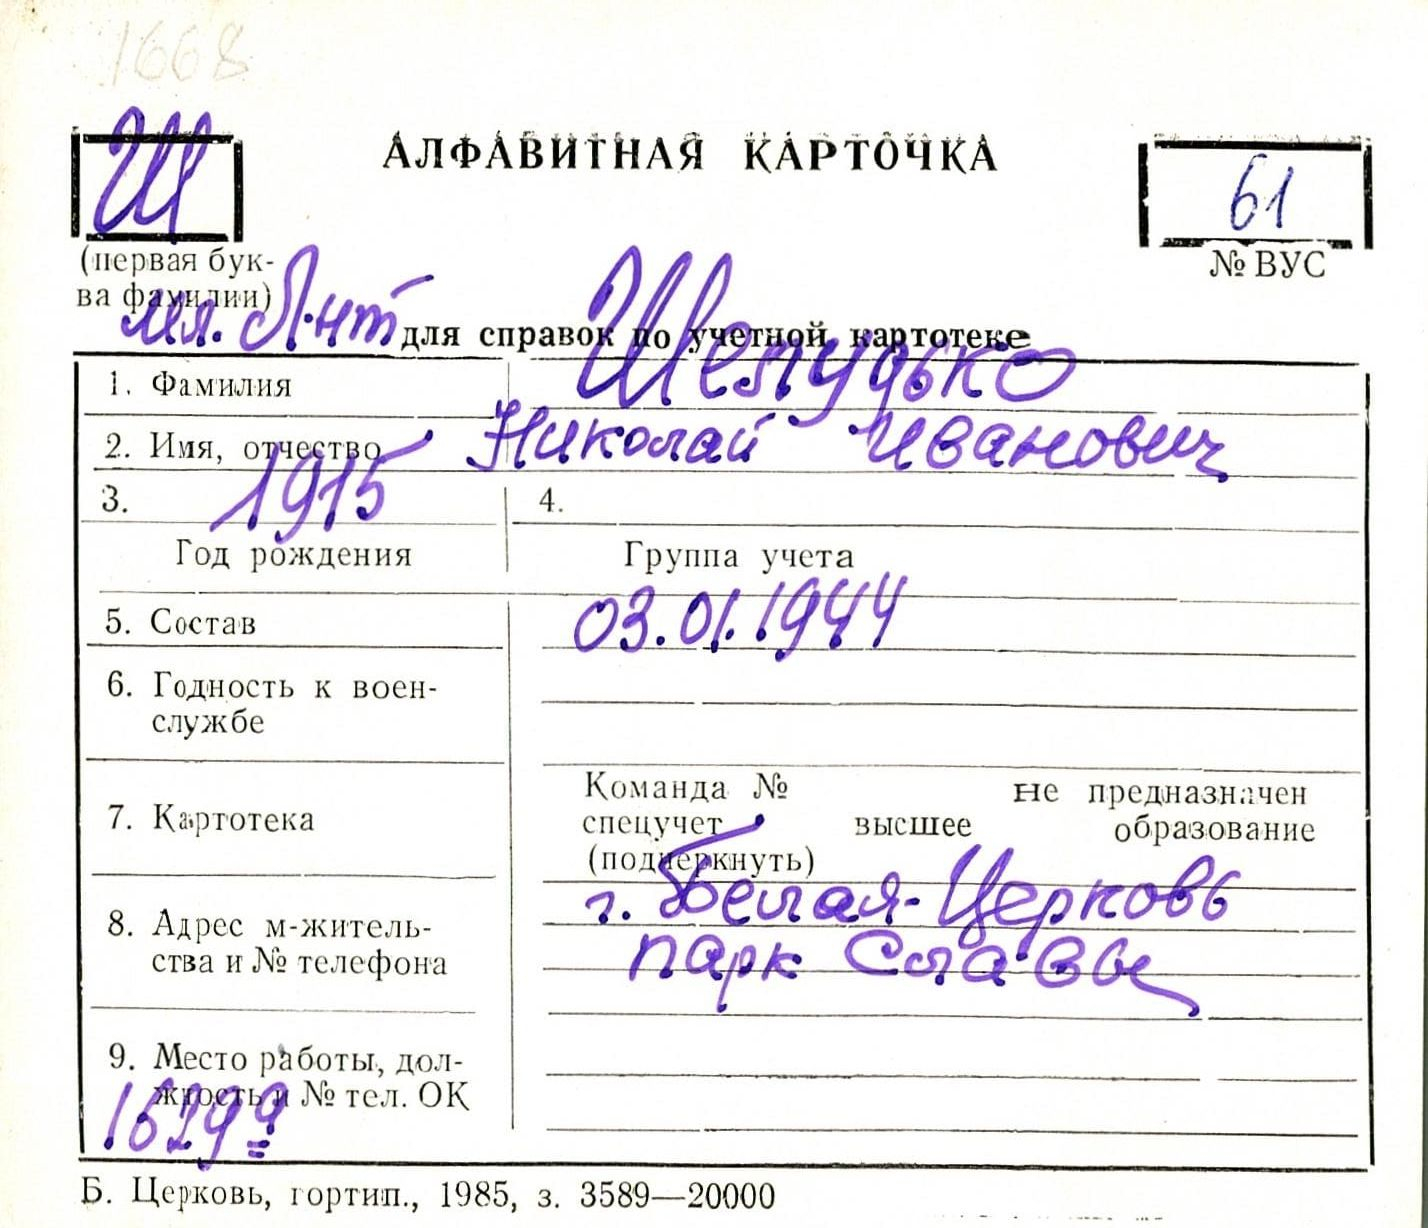 1668
Ш
АЛФАВИТНАЯ КАРТОЧКА
61
(первая бук-
ва фамилии)
№ ВУС
мл. Л-нт
для справок по учетной картотеке
1. Фамилия Шепудько
2. Имя, отчество Николай Иванович
3. 1915 4.
Год рождения Группа учета
5. Состав 03.01.1944
6. Годность к воен-
службе
Команда № не предназначен
7. Картотека спецучет высшее образование
(подчеркнуть)
8. Адрес м-житель- г. Белая-Церковь
ства и № телефона парк Славы
9. Место работы, дол-
жность и № тел. ОК
1629 9
Б. Церковь, гортип., 1985, з. 3589—20000